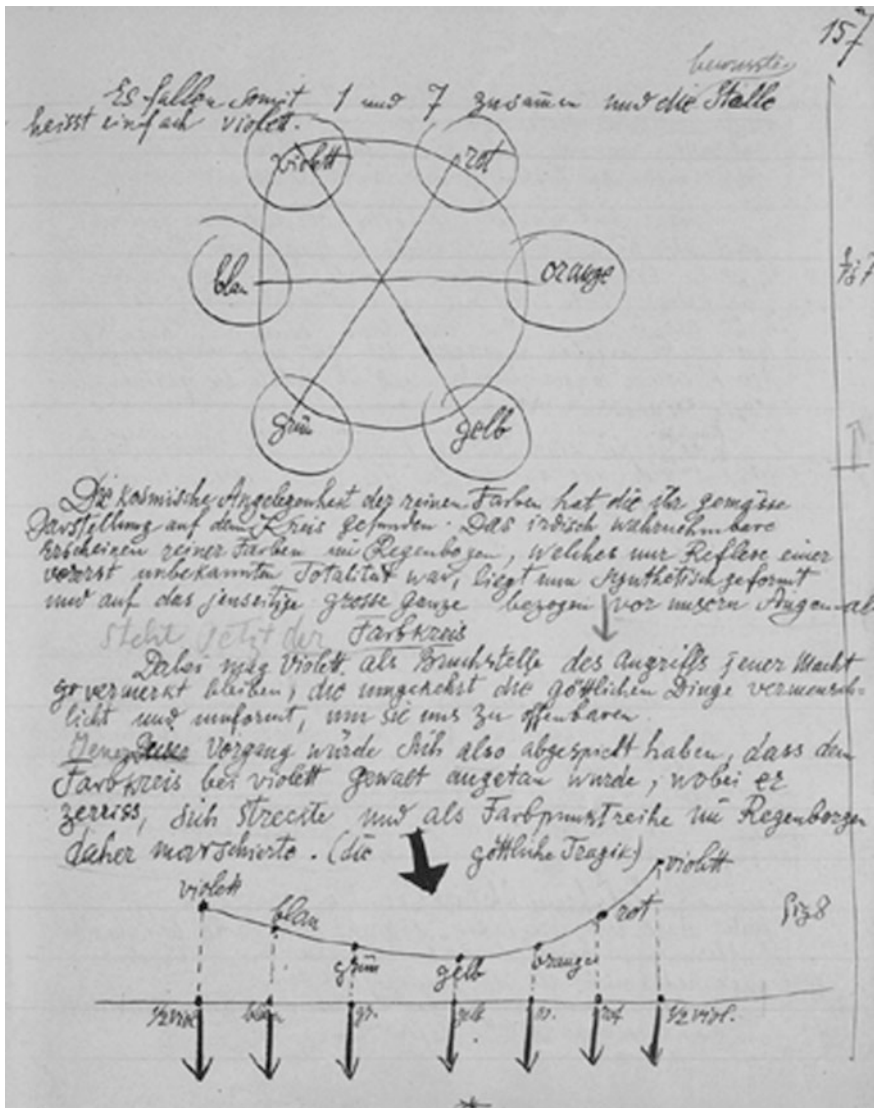 157
bewussten
Es fallen somit 1 und 7 zusammen und die Stelle
heisst einfach violett.
violett rot
blau orange
fig 7
grün gelb
Die kosmische Angelegenheit der reinen Farben hat die ihr gemässe
Darstellung auf dem Kreis gefunden. Das irdisch wahrnehmbare
Erscheinen reiner Farben im Regenbogen, welches nur Reflex einer
vorerst unbekannten Totalität war, liegt nun synthetisch geformt
und auf das jenseitige grosse Ganze bezogen vor unsern Augen als
steht jetzt der Farbkreis
Dabei mag Violett als Bruchstelle des Angriffs jener Macht
vermerkt bleiben, die umgekehrt die göttlichen Dinge vermensch-
licht und umformt, um sie uns zu offenbaren.
Jener Dieser Vorgang würde sich also abgespielt haben, dass dem
Farbkreis bei violett Gewalt angetan wurde, wobei er
zerriss, sich streckte und als Farbpunktreihe im Regenborgen
daher marschierte. (die göttliche Tragik)
violett
violett
blau rot fig 8
grün gelb orange
1/2 viol. blau gr. gelb or. rot 1/2 viol.